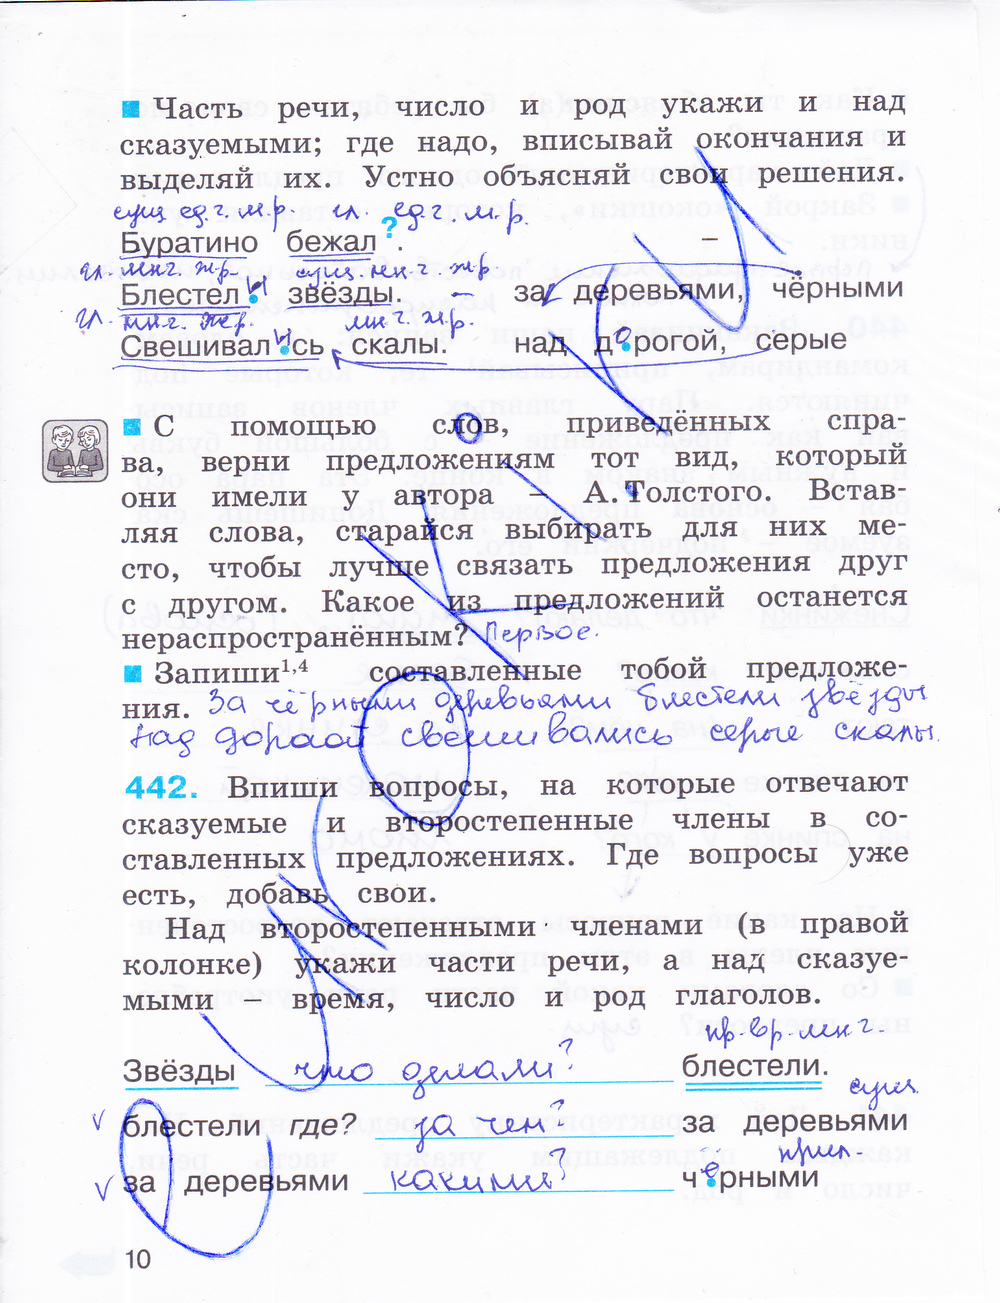 Часть речи, число и род укажи и над
сказуемыми; где надо, вписывай окончания и
выделяй их. Устно объясняй свои решения.
сущ ед.ч. м.р. гл. ед.ч. м.р.
Буратино бежал ? . –
гл. мн.ч. сущ. мн.ч.
Блестели звёзды. – за деревьями, чёрными
гл. мн.ч. мн.ч.
Свешивались скалы. над дорогой, серые
С помощью слов, приведённых спра-
ва, верни предложениям тот вид, который
они имели у автора – А. Толстого. Встав-
ляя слова, старайся выбирать для них ме-
сто, чтобы лучше связать предложения друг
с другом. Какое из предложений останется
нераспространённым? Первое.
Запиши1,4 составленные тобой предложе-
ния. За чёрными деревьями блестели звёзды
Над дорогой свешивались серые скалы.
442. Впиши вопросы, на которые отвечают
сказуемые и второстепенные члены в со-
ставленных предложениях. Где вопросы уже
есть, добавь свои.
Над второстепенными членами (в правой
колонке) укажи части речи, а над сказуе-
мыми – время, число и род глаголов.
пр.вр. мн.ч.
Звёзды что делали? блестели.
сущ.
блестели где? за чем? за деревьями
прил.
за деревьями какими? чёрными
10